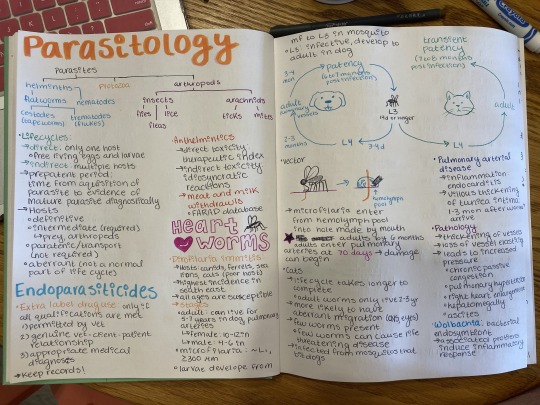 Parasitology
Parasites
helminths
protozoa
arthropods
flatworms
nematodes
insects
arachnids
cestodes
(tapeworm)
trematodes
(flukes)
flies
lice
fleas
ticks
mites
•Lifecycles:
→direct: only one host
→free living eggs and larvae
→indirect: multiple hosts
→prepatent period:
time from aquisition of
parasite to evidence of
mature parasite diagnostically
→Hosts
→definitive
→intermediate (required)
↳prey, arthropods
→paratenic/transport
(not required)
→aberrant (not a normal
part of life cycle)
Endoparasiticides
•Extra label drug use only if
all qualifications are met
1) permitted by vet
2) genuine vet-client-patient
relationship
3) appropriate medical
diagnosis
→Keep records!
•Anthelmintics
→direct toxicity
therapeutic index
→indirect toxicity
idiosyncratic
reactions
→meat and milk
withdrawals
→FARAD database
Heart
worms
•Dirofilaria immitis:
→Hosts: canids, ferrets, sea
lions, cats (poor host)
→highest incidence in
south east
→all ages are susceptible
→stages
•adult: can live for
5-7 years in dog pulmonary
arteries
→female: 10-12in
→male: 4-6 in
•microfilaria: ~L1,
≥300 µm
•larvae develope from
mf to L3 in mosquito
•L3: infective, develop to
adult in dog
3-4
mo
patency
(6 to 7 months
post infection)
adult
pulmonary
vessels
2-3
months
L4
3-4d
L3
Hid or winger
transient
patency
(7 to 8 months
post infection)
adult
L4
•vector
hemolymph
pool
→microfilaria enter
from hemolymph pool
into hole made by mouth
adults by 6 months
→adults enter pulmonary
arteries at 70 days → damage
can begin
•Cats
→lifecycle takes longer to
complete
→adult worms only live 2-3yr
→more likely to have
aberrant migration (CNS, eyes)
→few worms present
→few worms can cause life
threatening disease
→infected from mosquitos that
bit dogs
•Pulmonary arterial
disease
→inflammation
endocarditis
→villous thickening
of tunica intima
1-3 mon after worms
arrive
•Pathology
→thickening of vessels
→loss of vessel elasticity
leads to increased
pressure
•chronic passive
congestion
•pulmonary hypertension
•right heart enlargement
•hepatomegaly
•ascites
•Wolbachia: bacterial
endosymbiont
→associated proteins
induce inflammatory
response
Crayola